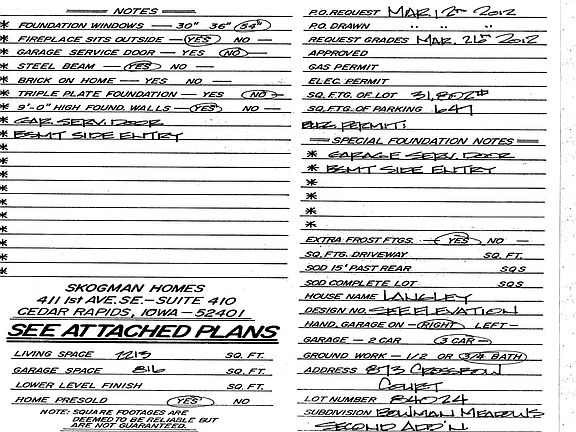 NOTES
* FOUNDATION WINDOWS — 30" 36" 54"
* FIREPLACE SITS OUTSIDE — YES — NO —
* GARAGE SERVICE DOOR — YES NO —
* STEEL BEAM — YES — NO —
* BRICK ON HOME — YES NO —
* TRIPLE PLATE FOUNDATION — YES NO —
* 9'-0" HIGH FOUND. WALLS — YES NO —
* GAR. SERV. DOOR
* BSMT SIDE ENTRY
*
*
*
*
*
*
*
*
*
*
SKOGMAN HOMES
411 1st AVE. SE. — SUITE 410
CEDAR RAPIDS, IOWA — 52401
SEE ATTACHED PLANS
LIVING SPACE 1213 SQ. FT.
GARAGE SPACE 816 SQ. FT.
LOWER LEVEL FINISH SQ. FT.
HOME PRESOLD YES NO
NOTE: SQUARE FOOTAGES ARE
DEEMED TO BE RELIABLE BUT
ARE NOT GUARANTEED.
P.O. REQUEST MAR. 12TH 2012
P.O. DRAWN " " "
REQUEST GRADES MAR. 21ST 2012
APPROVED
GAS PERMIT
ELEC. PERMIT
SQ. FTG. OF LOT 31,802#
SQ. FTG. OF PARKING 647
BLDG. PERMIT:
SPECIAL FOUNDATION NOTES
* GARAGE SERV. DOOR
* BSMT SIDE ENTRY
*
*
*
*
EXTRA FROST FTGS. — YES NO —
SQ. FTG. DRIVEWAY SQ. FT.
SOD 15' PAST REAR SQS
SOD COMPLETE LOT SQS
HOUSE NAME LANGLEY
DESIGN NO. SEE ELEVATION
HAND. GARAGE ON — RIGHT LEFT —
GARAGE — 2 CAR 3 CAR —
GROUND WORK — 1/2 OR 3/4 BATH
ADDRESS 873 CROSSBOW
COURT
LOT NUMBER 84024
SUBDIVISION BOWMAN MEADOWS
SECOND ADD'N